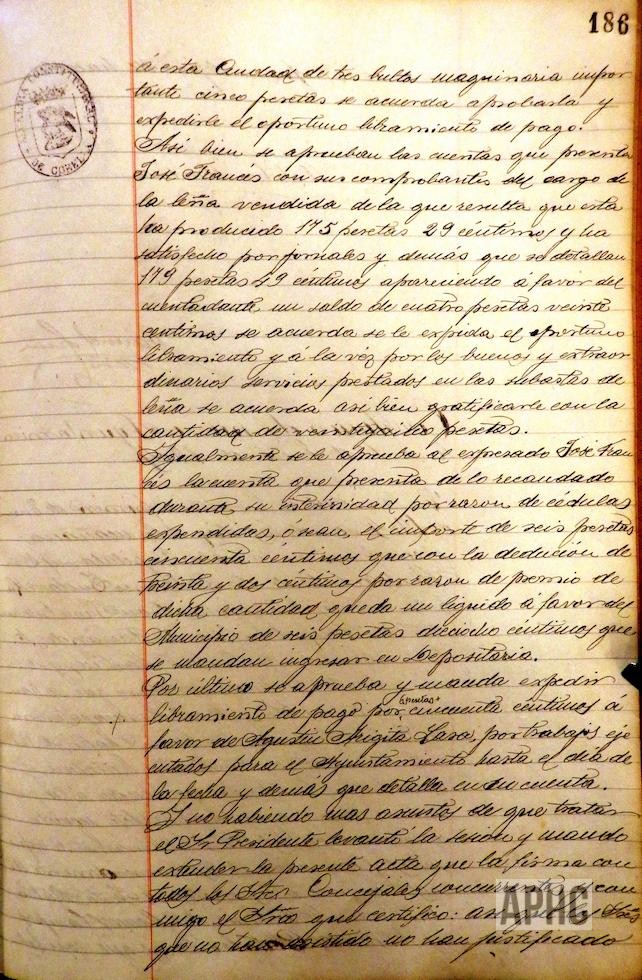 186
ALCALDIA CONSTITUCIONAL
DE CORELLA
á esta Ciudad de tres bultos maquinaria impor
tante cinco pesetas se acuerda aprobarla y
expedirle el oportuno libramiento de pago.
Asi bien se aprueban las cuentas que presenta
José Frances con sus comprobantes del cargo de
la leña vendida de la que resulta que esta
ha producido 175 pesetas 29 céntimos y ha
satisfecho por jornales y demás que se detallan
179 pesetas 49 céntimos apareciendo á favor del
cuentadante un saldo de cuatro pesetas veinte
centimos se acuerda se le expida el oportuno
libramiento y á la vez por los buenos y extraor
dinarios servicios prestados en las subastas de
leña se acuerda asi bien gratificarle con la
cantidad de veinticinco pesetas.
Igualmente se le aprueba al expresado José Fran
cés la cuenta que presenta de lo recaudado
durante su interinidad por razon de cédulas
expendidas, ó sean, el importe de seis pesetas
cincuenta céntimos que con la dedución de
treinta y dos céntimos por razon de premio de
dicha cantidad queda un liquido á favor del
Municipio de seis pesetas dieciocho céntimos que
se mandan ingresar en Depositaria.
Por último se aprueba y manda expedir
libramiento de pago por 6 pesetas cincuenta céntimos á
favor de Agustin Arigita Lasa, por trabajos eje
cutados para el Ayuntamiento hasta el dia de
la fecha y demás que detalla en su cuenta.
Y no habiendo mas asuntos de que tratar
el Sr Presidente levantó la sesión y mandó
extender la presente acta que la firma con
todos los Sres Concejales concurrentes y con
migo el Srio que certifico: aquellos Sres
que no han asistido no han justificado
APHC